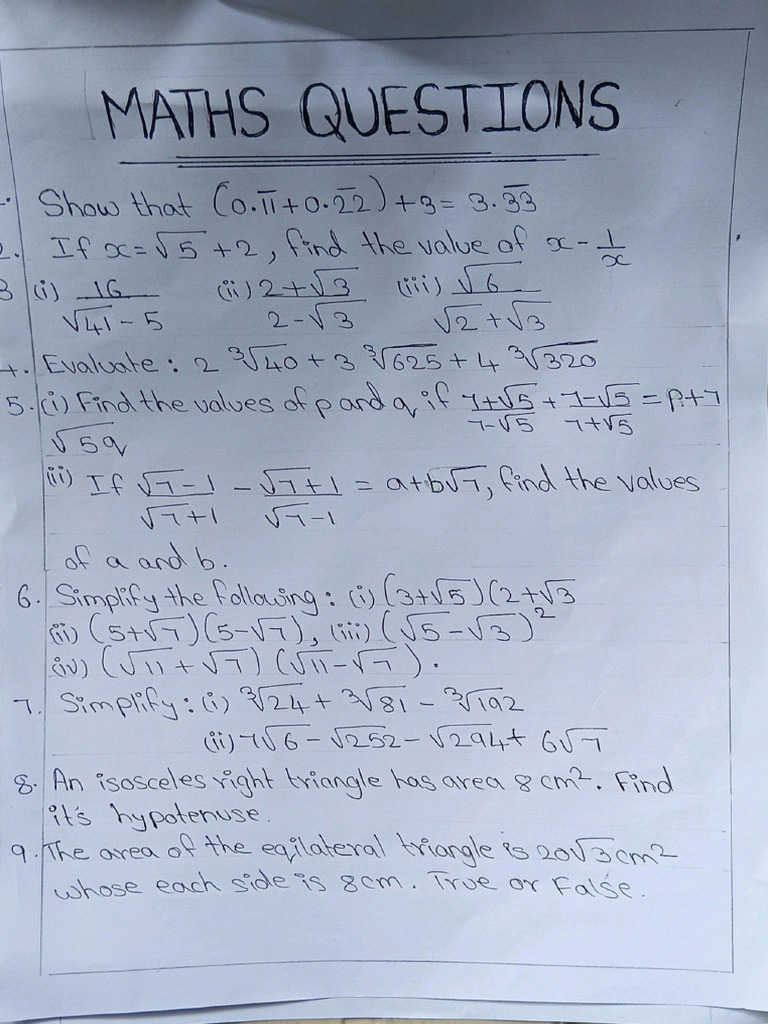 MATHS QUESTIONS
. Show that (0.1̅1̅+0.2̅2̅)+3= 3.3̅3̅
2. If x=√5+2, find the value of x-1/x
3 (i) 16/(√41-5) (ii) (2+√3)/(2-√3) (iii) √6/(√2+√3)
4. Evaluate: 2 ∛40+3 ∛625+4 ∛320
5. (i) Find the values of p and q if (7+√5)/(7-√5)+(7-√5)/(7+√5)=p+7
√5q
(ii) If (√7-1)/(√7+1) - (√7+1)/(√7-1) = a+b√7, find the values
of a and b.
6. Simplify the following: (i) (3+√5)(2+√3
(ii) (5+√7)(5-√7), (iii) (√5-√3)²
(iv) (√11+√7) (√11-√7).
7. Simplify: (i) ∛24+ ∛81 - ∛192
(ii) 7√6-√252-√294+ 6√7
8. An isosceles right triangle has area 8 cm². Find
it's hypotenuse.
9. The area of the eqilateral triangle is 20√3cm²
whose each side is 8cm. True or False.